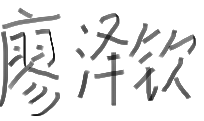 廖泽钦